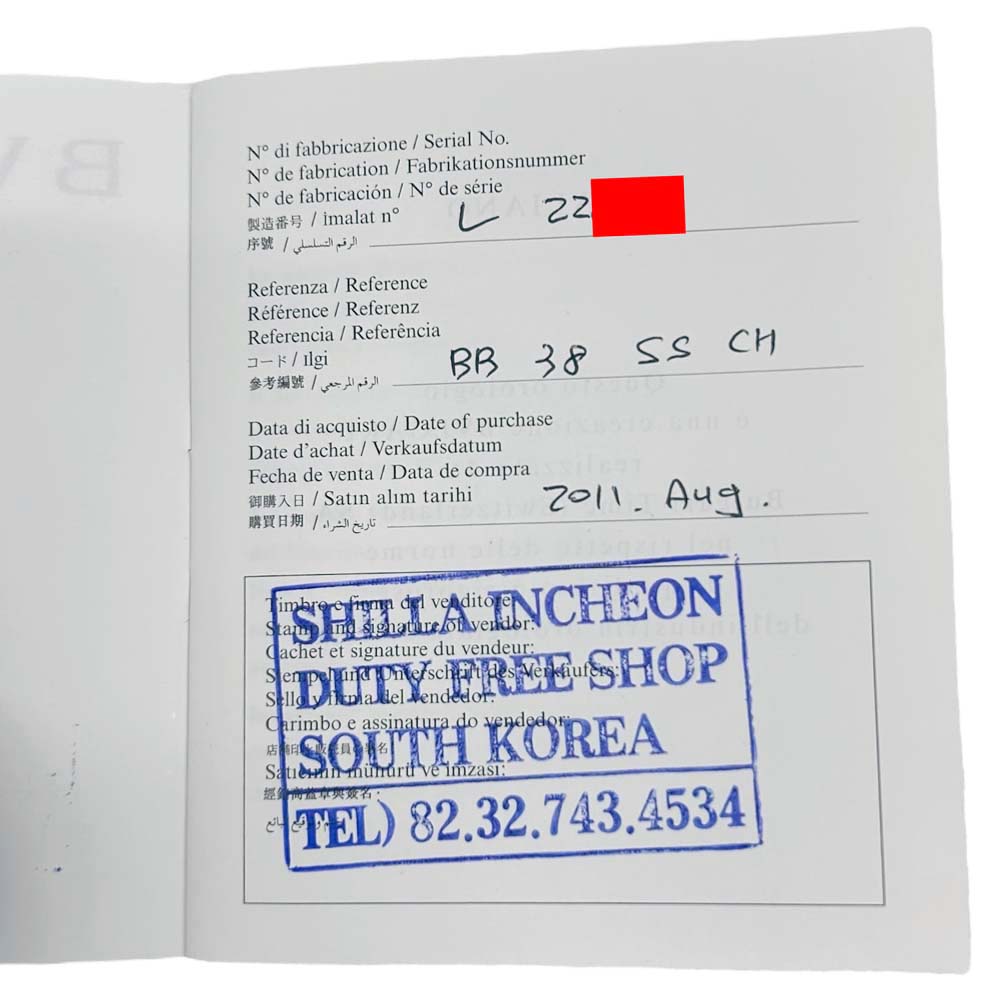 N° di fabbricazione / Serial No.
N° de fabrication / Fabrikationsnummer
N° de fabricación / N° de série
製造番号 / imalat n°
序號 / الرقم التسلسلي
L 22
Referenza / Reference
Référence / Referenz
Referencia / Referência
コード / Ilgi
參考編號 / الرقم المرجعي
BB 38 SS CH
Data di acquisto / Date of purchase
Date d'achat / Verkaufsdatum
Fecha de venta / Data de compra
御購入日 / Satın alım tarihi
購買日期 / تاريخ الشراء
2011. Aug.
Timbro e firma del venditore:
Stamp and signature of vendor:
Cachet et signature du vendeur:
Stempel und Unterschrift des Verkäufers:
Sello y firma del vendedor:
Carimbo e assinatura do vendedor:
Satıcının mühürü ve imzası:
SHILLA INCHEON
DUTY FREE SHOP
SOUTH KOREA
TEL) 82.32.743.4534